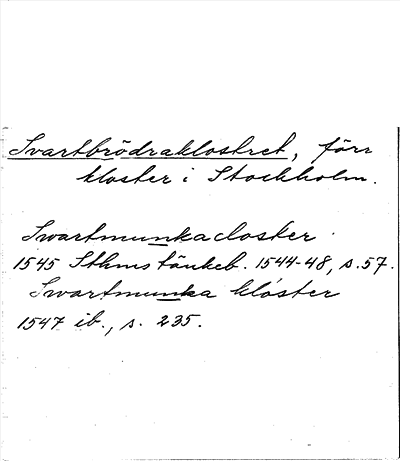 Svartbrödraklostret, förr
kloster i Stockholm.
Swartmunkacloster
1545 Sthms tänkeb. 1544-48, s. 57.
Swartmunka kloster
1547 ib., s. 235.